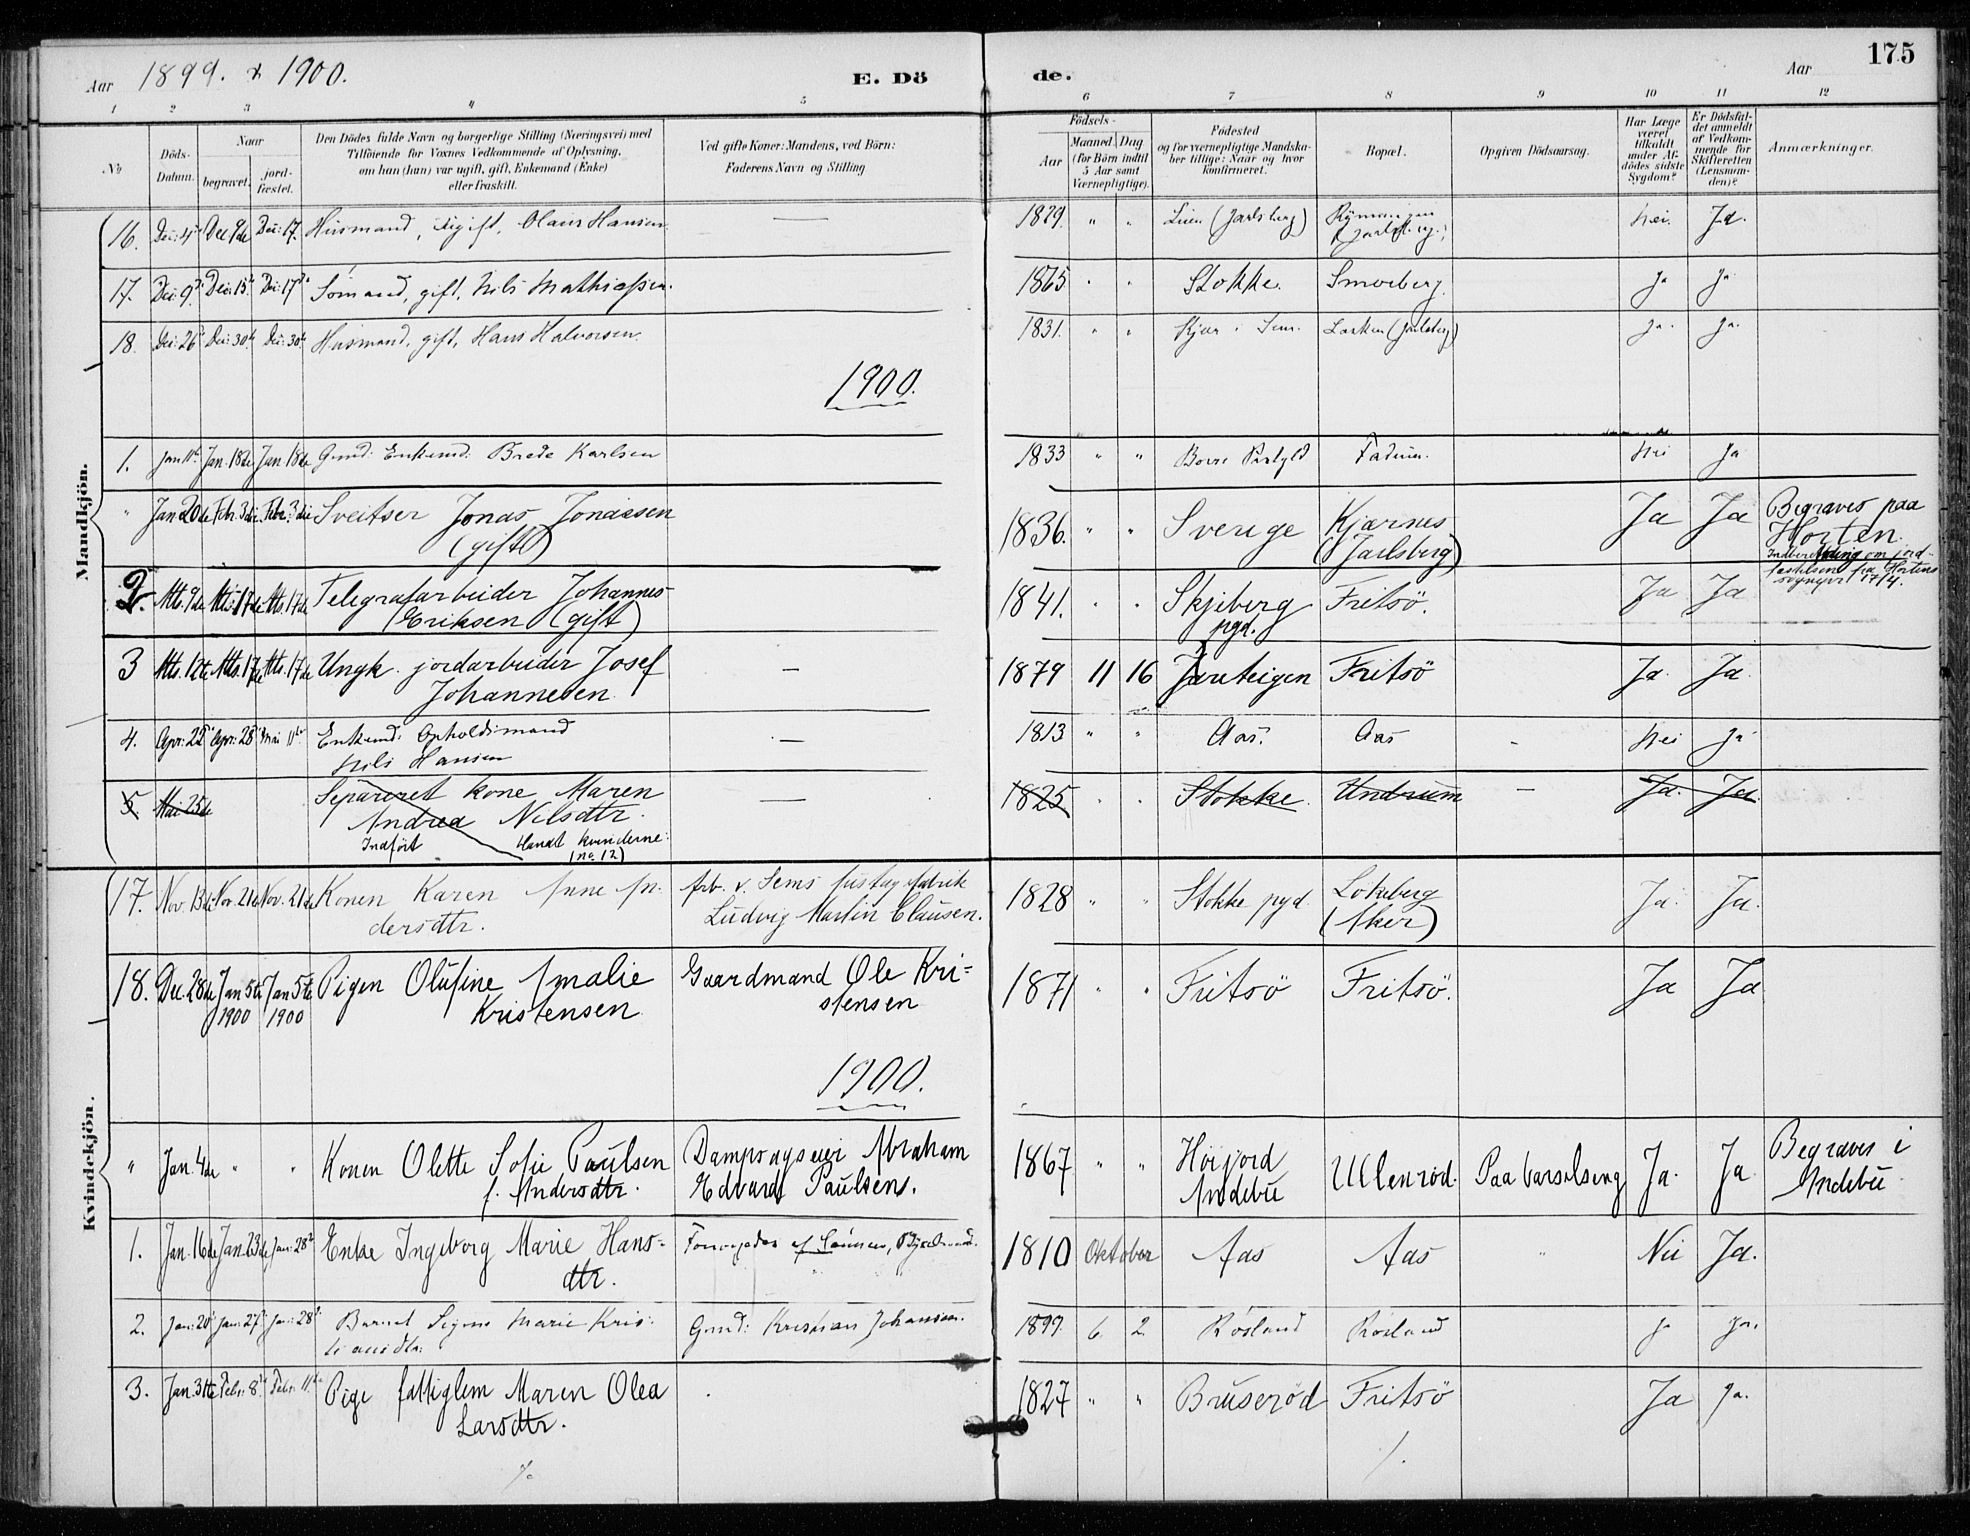 Aar 1899. & 1900.
E. Dö
de.
Aar
175
1 2 3 4 5 6 7 8 9 10 11 12
No
Döds-
Datum.
Naar
begravet.
jord-
fæstet.
Den Dödes fulde Navn og borgerlige Stilling (Næringsvei) med
Tilföiende for Voxnes Vedkommende af Oplysning,
om han (hun) var ugift, gift, Enkemand (Enke)
eller fraskilt.
Ved gifte Koner: Mandens, ved Börn:
Faderens Navn og Stilling
Födsels-
Aar
Maaned. Dag
(for Börn indtil
5 Aar samt
Værnepligtige).
Födested
og for værnepligtige Mandska-
ber tillige: Naar og hvor
konfirmeret.
Bopæl.
Opgiven Dödsaarsag.
Har Læge
været
tilkaldt
under Af-
dödes sidste
Sygdom?
Er Dödsfal-
det anmeldt
af Vedkom-
mende for
Skifteretten
(Lensman-
den)?
Anmærkninger.
Mandkjön.
16. Dec: 4 Dec 9de Dec: 17. Husmand, Olaus Hansen — 1829. " " (Jarlsberg) Nei. Ja.
17. Dec: 9 Dec: 15 Dec: 17 Sömand, gift, Nils Mathiassen. 1865 " " Stokke. Smorberg. Ja Ja
18. Dec: 26 Dec: 30 Dec: 30 Husmand, gift, Hans Halvorsen. 1831. " " Kjær i Sem. (Jarlsberg) Ja. Ja.
1900.
1. Jan 11 Jan. 18de Jan. 18de Gmd: Enkemd: Brede Karlsen 1833 " " Borre Fadum. Nei Ja
" Jan 20de Febr. 3die Febr. 3die Sveitser Jonas Jonassen
(gift) 1836. " " Sverige Kjærnes
(Jarlsberg) Ja Ja Begraves paa
Horten.
Indberetning om jord-
fæstelsen fra Hortens
sogнepr 17/4.
2. Mts. 9de Mts. 17de Mts. 17de Telegrafarbeider Johannes
Eriksen (gift) 1841. " " Skjeberg
pgd. Fritsö. Ja Ja
3 Mts. 12te Mts. 17de Mts. 17de Ungk. jordarbeider Josef
Johannesen — 1879 11 16 Jareteigen Fritsö Ja. Ja
4. Apr: 22 Apr: 28 Mai 11 Enkemd: Opholdsmand
Nils Hansen — 1813 " " Aas. Aas - Nei Ja
5. Mai 25de Separeret kone Maren
Andrea Nilsdtr.
Indfört blandt kvinderne
(no. 12) — 1825 " " Stokke. Undrum — Ja. Ja.
Kvindekjön.
17. Nov. 13de Nov. 21de Nov. 21de Konen Karen Anne An-
dersdtr. Arb. v. Sems fustagefabrik
Ludvig Martin Clausen. 1828 " " Stokke pgd. Lokeberg
(Aker) Ja. Ja.
18. Dec. 28de Jan 5te
1900 Jan 5te
1900 Pigen Olufine Amalie
Kristensen Gaardmand Ole Kri=
stensen 1871 " " Fritsö Fritsö. Ja Ja
1900.
" Jan. 4de " " Konen Olette Sofie Paulsen
f. Andersdtr. Dampsagseier Abraham
Edvard Paulsen. 1867 " " Höijord
Andebu Ullenröd. Paa barselseng Ja. Ja Begraves i
Andebu
1. Jan. 16de Jan. 23de Jan: 28 Enke Ingeborg Marie Hans-
dtr. 1810 Oktober Aas Aas " Nei Ja.
2. Jan: 20 Jan: 27 Jan: 28 Barnet Signe Marie Kris-
tiansdtr: Gmd: Kristian Johansen. 1899. 6. 2. Rösland Rösland Ja Ja.
3. Jan. 31te Febr: 8 Febr: 11 Pige fattiglem Maren Olea
Larsdtr. 1827 " " Bruseröd Fritsö Ja Ja.